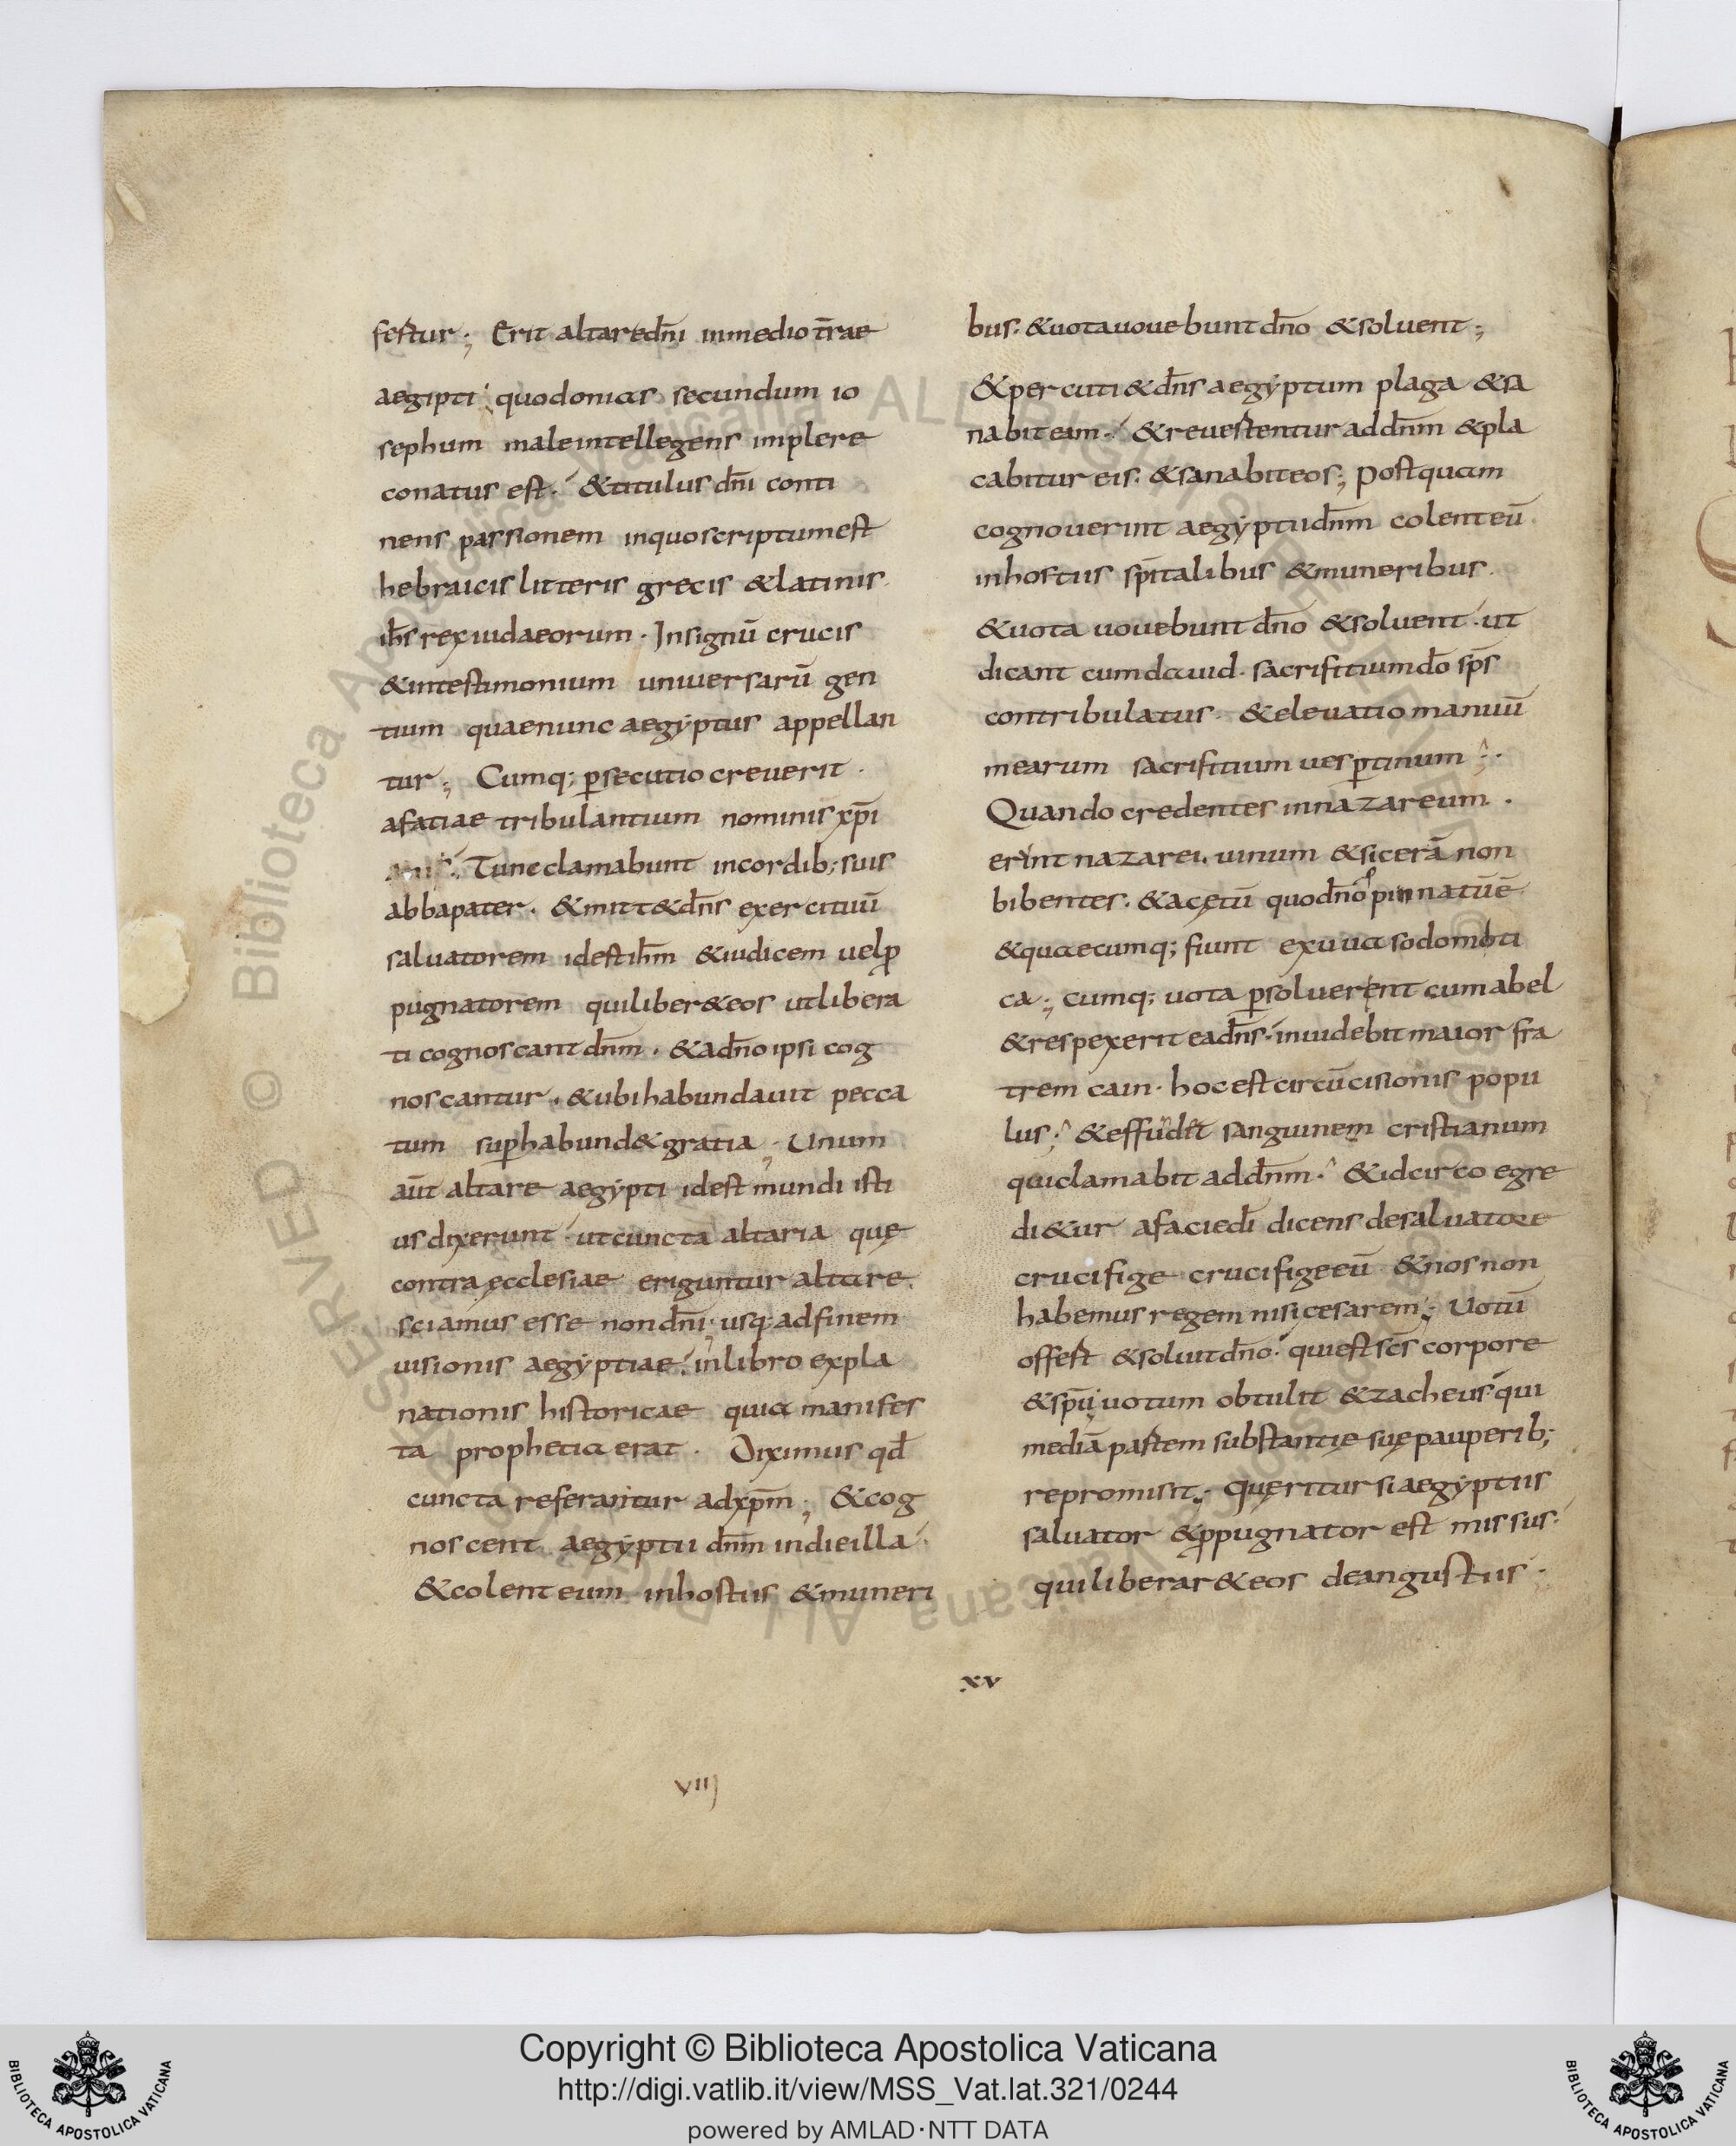 festur; Erit altare dn̄i inmedio tr̄ae
aegipti quodonias secundum io
sephum male intellegens implere
conatus est. &titulus dn̄i conti
nens passionem inquo scriptum est
hebraicis litteris grecis &latinis
ih̄s rex iudaeorum. Insignū crucis
&intestimonium uniuersarū gen
tium quae nunc aegyptus appellan
tur; Cumq; p̄secutio creuerit.
afatiae tribulantium nominis xp̄i
Tunc clamabunt incordib; suis
abbapater. &mitt&dn̄s exercituū
saluatorem idest ih̄m &iudicem uel p̄
pugnatorem quiliber&eos utlibera
ti cognoscant dn̄m. &adn̄o ipsi cog
noscantur. &ubi habundauit pecca
tum sup̄habund&gratia; Unum
aūt altare aegypti idest mundi isti
us dixerunt ut cuncta altaria quę
contra ęcclesiae eriguntur altare.
sciamus esse non dn̄i; usq; adfinem
uisionis aegyptiae. inlibro expla
nationis historicae quia manifes
ta prophetia erat. Diximus qd̄
cuncta referantur adxp̄m; &cog
noscent aegyptii dn̄m indieilla.
&colent eum inhostiis &muneri
bus. &uota uouebunt dn̄o &soluent;
&percuti&dn̄s aegyptum plaga &sa
nabit eam. &reuestentur addn̄m &pla
cabitur eis. &sanabit eos; Postquam
cognouerint aegyptii dn̄m colent eū
inhostiis sp̄italibus &muneribus.
&uota uouebunt dn̄o &soluent. ut
dicant cum dauid. sacrifitium dō sp̄s
contribulatus. &eleuatio manuū
mearum sacrifitium uesp̄tinum;
Quando credentes innazareum.
erint nazarei. uinum &sicerā non
bibentes. &acętū quod dn̄o natūē
&quaecumq; fiunt ex uua sodomiti
ca; cumq; uota p̄soluerent cum abel
&respexerit ea dn̄s. inuidebit maior fra
trem cain. hoc est circūcisionis popu
lus; &effudit sanguinem cristianum
qui clamabit addn̄m. &idcirco egre
di&ur afacie dī dicens de saluatore
crucifige crucifige eū &nos non
habemus regem nisi cesarem; Uotū
offest &soluit dn̄o. qui est scs̄ corpore
&sp̄u; uotum obtulit &zacheus qui
mediā pastem substantię suę pauperib;
repromisit; Queritur si aegyptiis
saluator &p̄pugnator est missus.
qui liberar&eos deangustiis.
xv
VIIJ
Copyright © Biblioteca Apostolica Vaticana
http://digi.vatlib.it/view/MSS_Vat.lat.321/0244
powered by AMLAD·NTT DATA
BIBLIOTECA APOSTOLICA VATICANA
BIBLIOTECA APOSTOLICA VATICANA